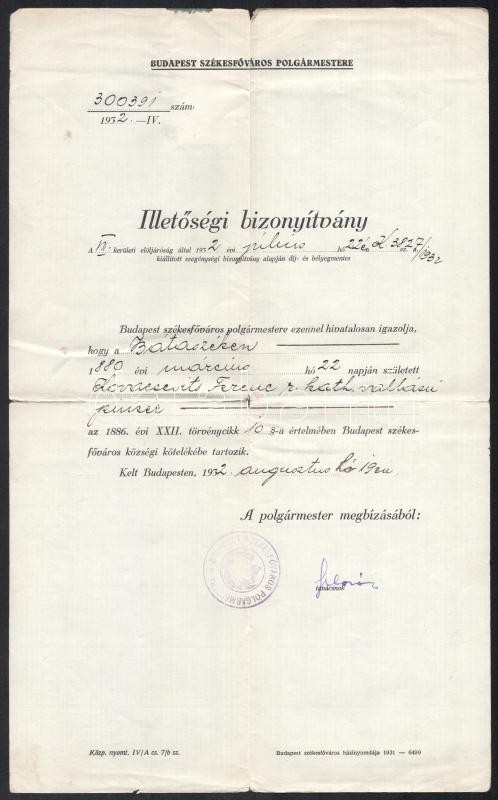 BUDAPEST SZÉKESFŐVÁROS POLGÁRMESTERE
300391 szám
1932.—IV.
Illetőségi bizonyítvány
A VII. kerületi elöljáróság által 1932 évi július hó 22én 3827/1932 sz. a.
kiállított szegénységi bizonyítvány alapján díj- és bélyegmentes
Budapest székesfőváros polgármestere ezennel hivatalosan igazolja,
hogy a Bátaszéken
1880 évi március hó 22 napján született
Kovacsevits Ferenc, r. kath. vallású
pincér
az 1886. évi XXII. törvénycikk 10 §-a értelmében Budapest székes-
főváros községi kötelékébe tartozik.
Kelt Budapesten, 1932. augusztus hó 19én.
A polgármester megbízásából:
tanácsnok
Közp. nyomt. IV/A cs. 7/b sz.
Budapest székesfőváros házinyomdája 1931 — 6490